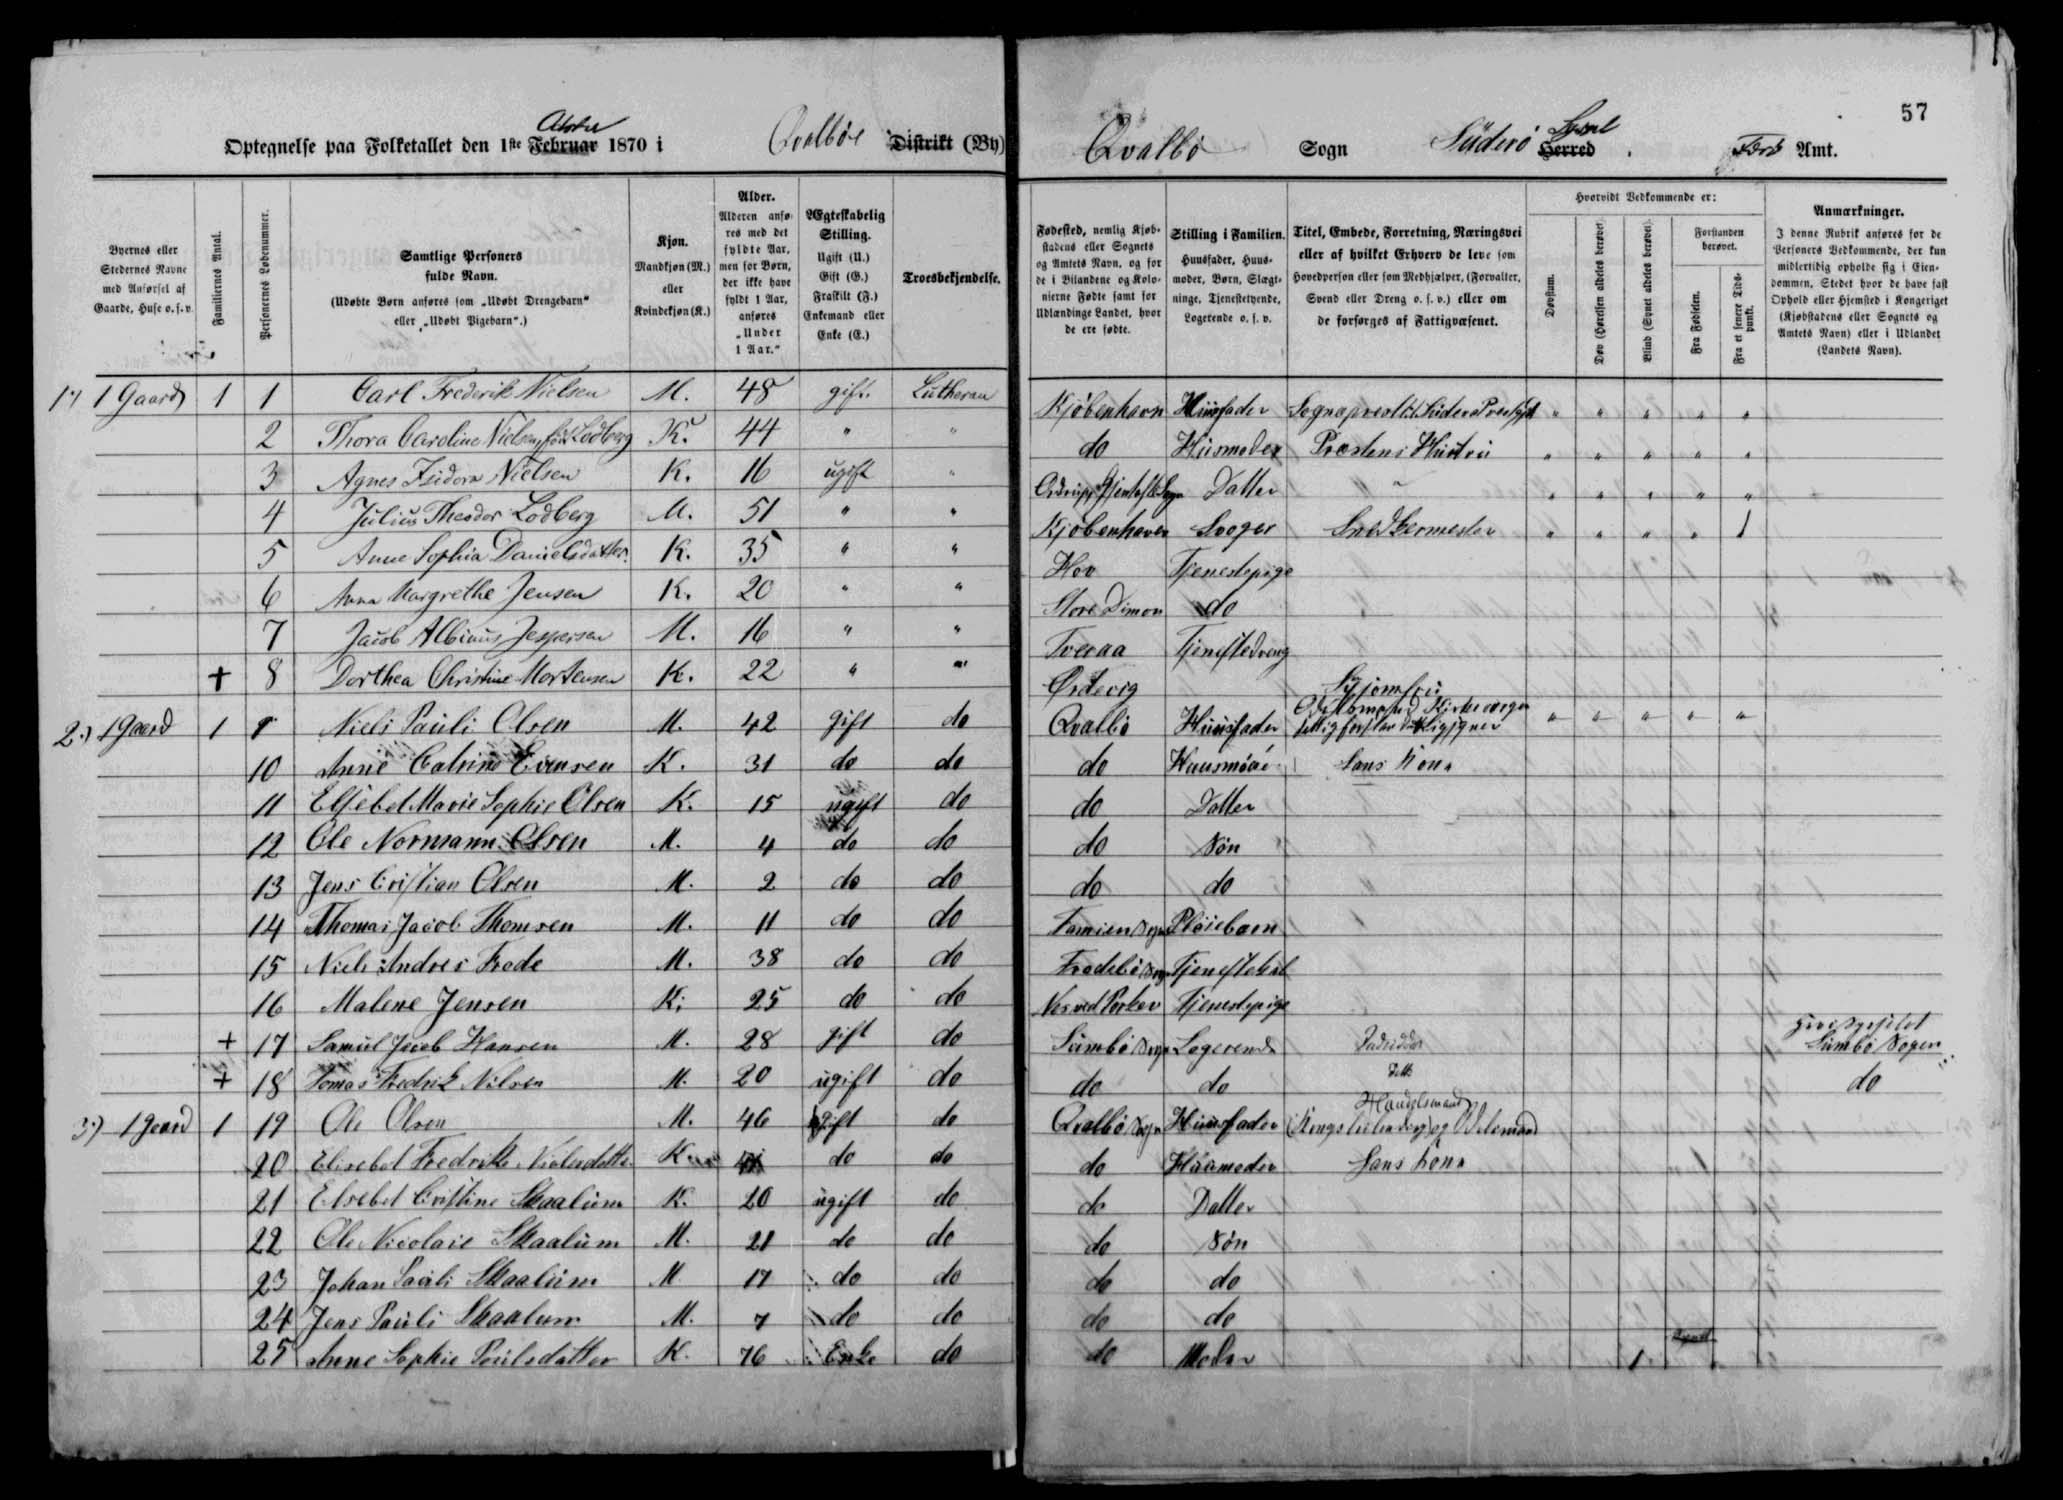 57
Optegnelse paa Folketallet den 1ste Februar 1870 i Qvalböe Distrikt (By)
Qvalbö Sogn Süderö Syssel Herred. Færö Amt.
Byernes eller Stedernes Navne med Anførsel af Gaarde, Huse o. s. v.
Familiernes Antal.
Personernes Løbenummer.
Samtlige Personers fulde Navn.
(Udøbte Børn anføres som „Udøbt Drengebarn“ eller „Udøbt Pigebarn“.)
Kjøn. Mandkjøn (M.) eller Kvindekjøn (K.)
Alder. Alderen anføres med det fyldte Aar, men for Børn, der ikke have fyldt 1 Aar, anføres „Under 1 Aar.“
Ægteskabelig Stilling. Ugift (U.) Gift (G.) Fraskilt (F.) Enkemand eller Enke (E.)
Troesbekjendelse.
Fødested, nemlig Kjøbstadens eller Sognets og Amtets Navn, og for de i Bilandene og Kolonierne Fødte samt for Udlændinge Landet, hvor de ere fødte.
Stilling i Familien. Huusfader, Huusmoder, Børn, Slægtninge, Tjenestetyende, Logerende o. s. v.
Titel, Embede, Forretning, Næringsvei eller af hvilket Erhverv de leve som Hovedperson eller som Medhjælper, (Forvalter, Svend eller Dreng o. s. v.) eller om de forsørges af Fattigvæsenet.
Hvorvidt Vedkommende er:
Døvstum.
Døv (Hørelsen aldeles berøvet).
Blind (Synet aldeles berøvet).
Forstanden berøvet.
Fra Fødselen.
Fra et senere Tidspunkt.
Anmærkninger. I denne Rubrik anføres for de Personers Vedkommende, der kun midlertidig opholde sig i Eiendommen, Stedet hvor de have fast Ophold eller Hjemsted i Kongeriget (Kjøbstadens eller Sognets og Amtets Navn) eller i Udlandet (Landets Navn).
1) 1 Gaard 1 1 Carl Frederik Nielsen M. 48 gift. Lutheran Kjöbenhavn Huusfader Sognepræst " " " " "
2 Thora Caroline Nielsen født Lodberg K. 44 " " do Huusmoder Præstens Hustru " " " " "
3 Agnes Isidora Nielsen K. 16 ugift " Ordrup Gjentofte Sogn Datter " " " " " "
4 Julius Theodor Lodberg M. 51 " " Kjöbenhavn Svoger Snedkermester " " " " 1
5 Anne Sophia Danielsdatter K. 35 " " Hov Tjenestepige
6 Anna Margrethe Jensen K. 20 " " Store Dimon do
7 Jacob Albinus Jespersen M. 16 " " Tveraa Tjenestedreng
+ 8 Dorthea Christine Mortensen K. 22 " " Ördevig Syjomfru
2.) 1 Gaard 1 9 Niels Pauli Olsen M. 42 gift do Qvalbö Huusfader Odelsmand Kirkeverger " " " " "
10 Anne Catrine Evensen K. 31 do do do Huusmoder Hans Kone
11 Elsebet Marie Sophie Olsen K. 15 ugift do do Datter
12 Ole Normann Olsen M. 4 do do do Sön
13 Jens Cristian Olsen M. 2 do do do do
14 Thomas Jacob Thomsen M. 11 do do Famien Sogn Pleiebarn
15 Niels Andres Frode M. 38 do do Frodebö Sogn Tjenestekarl
16 Malene Jensen K. 25 do do Nes ved Porkev Tjenestepige
+ 17 Samuel Jacob Hansen M. 28 gift do Sumbö Sogn Logerende Sumbö Sogn
+ 18 Tomas Fredrik Nilsen M. 20 ugift do do do do
3.) 1 Gaard 1 19 Ole Olsen M. 46 gift do Qvalbö Sogn Huusfader Handelsmand og Odelsmand
20 Elisebet Fredrikke Nielsdatter K. 41 do do do Huusmoder Hans Kone
21 Elsebet Cristine Skaalum K. 20 ugift do do Datter
22 Ole Nicolaie Skaalum M. 21 do do do Sön
23 Johan Pauli Skaalum M 17 do do do do
24 Jens Pauli Skaalum M. 7 do do do do
25 Anne Sophie Poulsdatter K. 76 Enke do do Moder 1